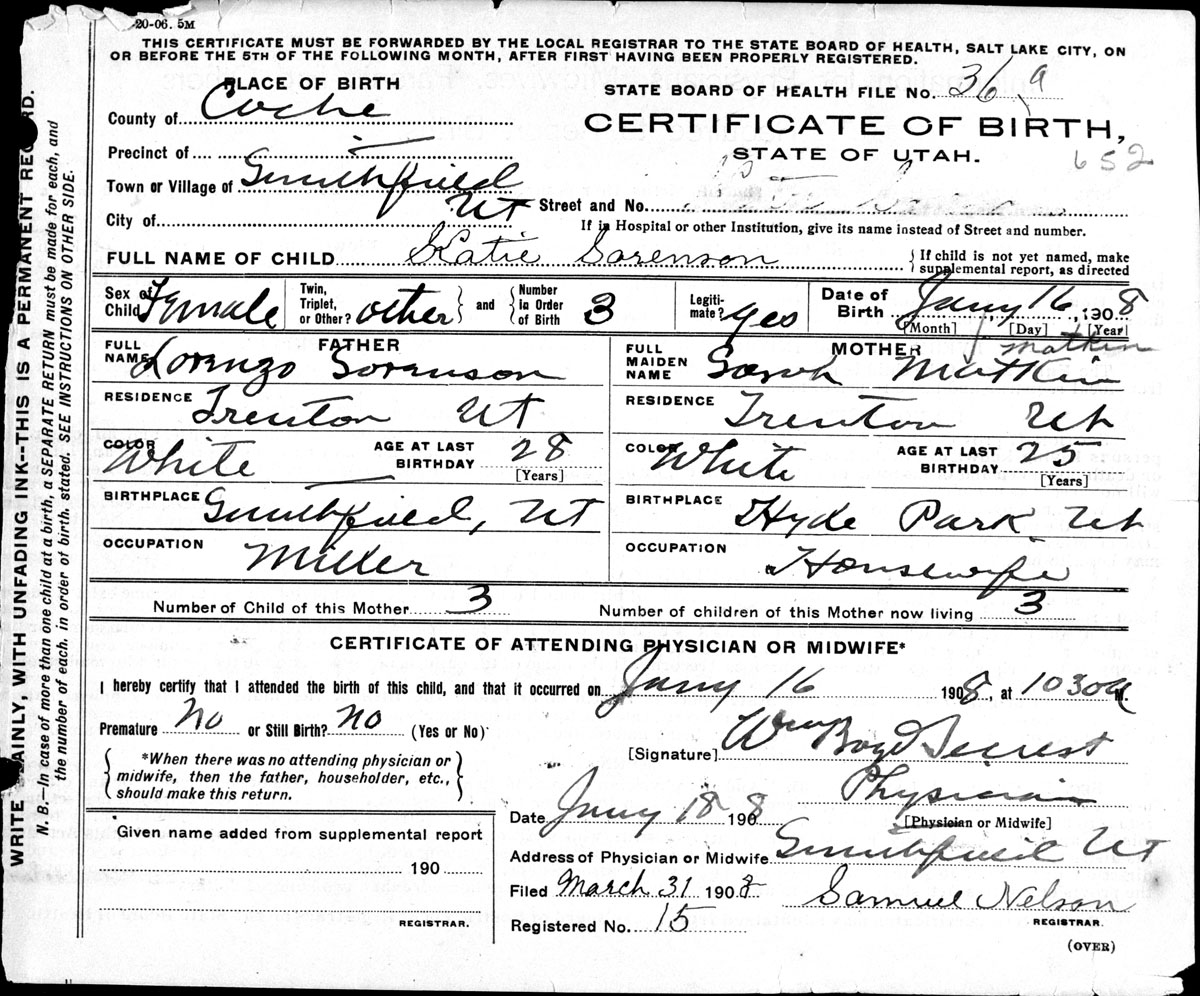 20-06. 5M
THIS CERTIFICATE MUST BE FORWARDED BY THE LOCAL REGISTRAR TO THE STATE BOARD OF HEALTH, SALT LAKE CITY, ON
OR BEFORE THE 5TH OF THE FOLLOWING MONTH, AFTER FIRST HAVING BEEN PROPERLY REGISTERED.
PLACE OF BIRTH
STATE BOARD OF HEALTH FILE No. 36 a
County of Cache
CERTIFICATE OF BIRTH,
Precinct of
STATE OF UTAH.
652
Town or Village of Smithfield
Ut
City of
Street and No.
If in Hospital or other Institution, give its name instead of Street and number.
FULL NAME OF CHILD Katie Sorenson
If child is not yet named, make
supplemental report, as directed
Sex of Child Female
Twin, Triplet, or Other? other
and
Number in Order of Birth 3
Legiti- mate? yes
Date of Birth Jany 16, 1908
[Month] [Day] [Year]
FATHER
FULL NAME Lorenzo Sorenson
MOTHER
Matkin
FULL MAIDEN NAME Sarah Matkin
RESIDENCE Trenton Ut
RESIDENCE Trenton Ut
COLOR White
AGE AT LAST BIRTHDAY 28
[Years]
COLOR White
AGE AT LAST BIRTHDAY 25
[Years]
BIRTHPLACE Smithfield, Ut
BIRTHPLACE Hyde Park Ut
OCCUPATION Miller
OCCUPATION Housewife
Number of Child of this Mother 3
Number of children of this Mother now living 3
CERTIFICATE OF ATTENDING PHYSICIAN OR MIDWIFE*
I hereby certify that I attended the birth of this child, and that it occurred on Jany 16 1908, at 1030 a M.
Premature No or Still Birth? No (Yes or No)
[Signature] Wm Boyd Secrest
*When there was no attending physician or
midwife, then the father, householder, etc.,
should make this return.
Physician
[Physician or Midwife]
Date Jany 18 1908
Given name added from supplemental report
190
REGISTRAR.
Address of Physician or Midwife Smithfield Ut
Filed March 31 1908
Samuel Nelson
REGISTRAR.
Registered No. 15
(OVER)
WRITE PLAINLY, WITH UNFADING INK--THIS IS A PERMANENT RECORD.
N. B.—In case of more than one child at a birth, a SEPARATE RETURN must be made for each, and
the number of each, in order of birth, stated. SEE INSTRUCTIONS ON OTHER SIDE.